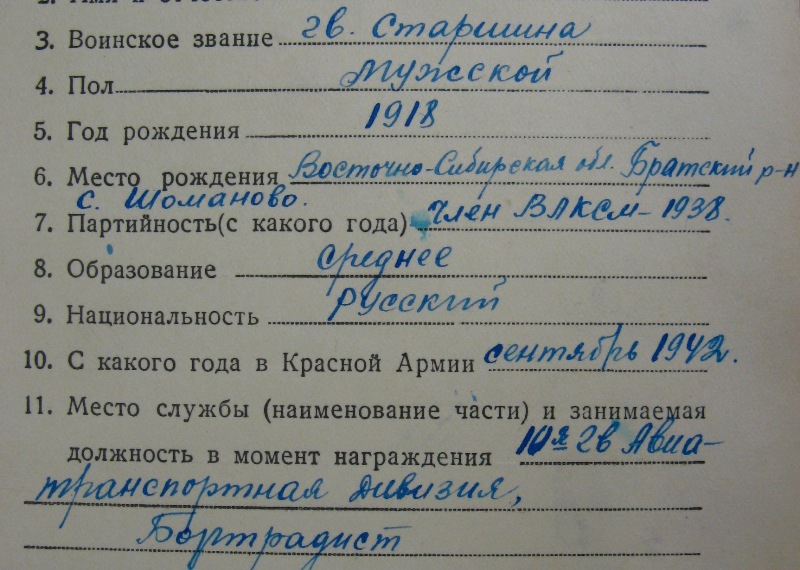 3. Воинское звание гв. Старшина
4. Пол мужской
5. Год рождения 1918
6. Место рождения Восточно-Сибирская обл. Братский р-н
с. Шоманово.
7. Партийность(с какого года) Член ВЛКСМ - 1938.
8. Образование среднее
9. Национальность русский
10. С какого года в Красной Армии сентябрь 1942.
11. Место службы (наименование части) и занимаемая
должность в момент награждения 10я гв Авиа-
транспортная дивизия,
Бортрадист